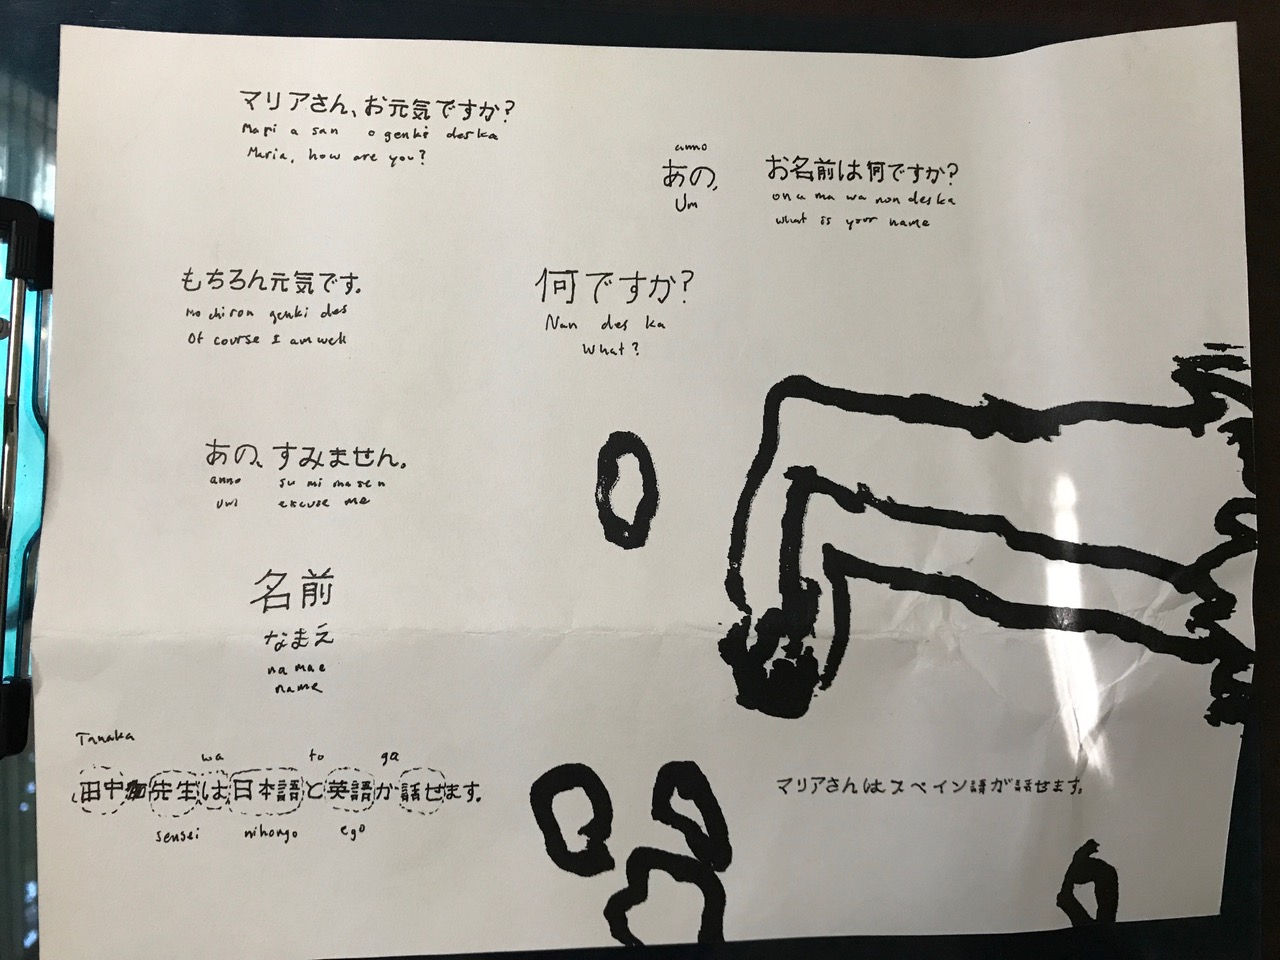 マリアさん、お元気ですか?
Mari a san o genki des ka
Maria, how are you?
anno
あの、
Um
お名前は何ですか?
on a ma wa nan des ka
what is your name
もちろん元気です。
Mo chi ron genki des
Of course I am well
何ですか?
Nan des ka
What?
あの、すみません。
anno su mi ma sen
um excuse me
名前
なまえ
na mae
name
Tanaka
wa to ga
田中先生は日本語と英語が話せます。
sensei nihongo ego
マリアさんはスペイン語が話せます。